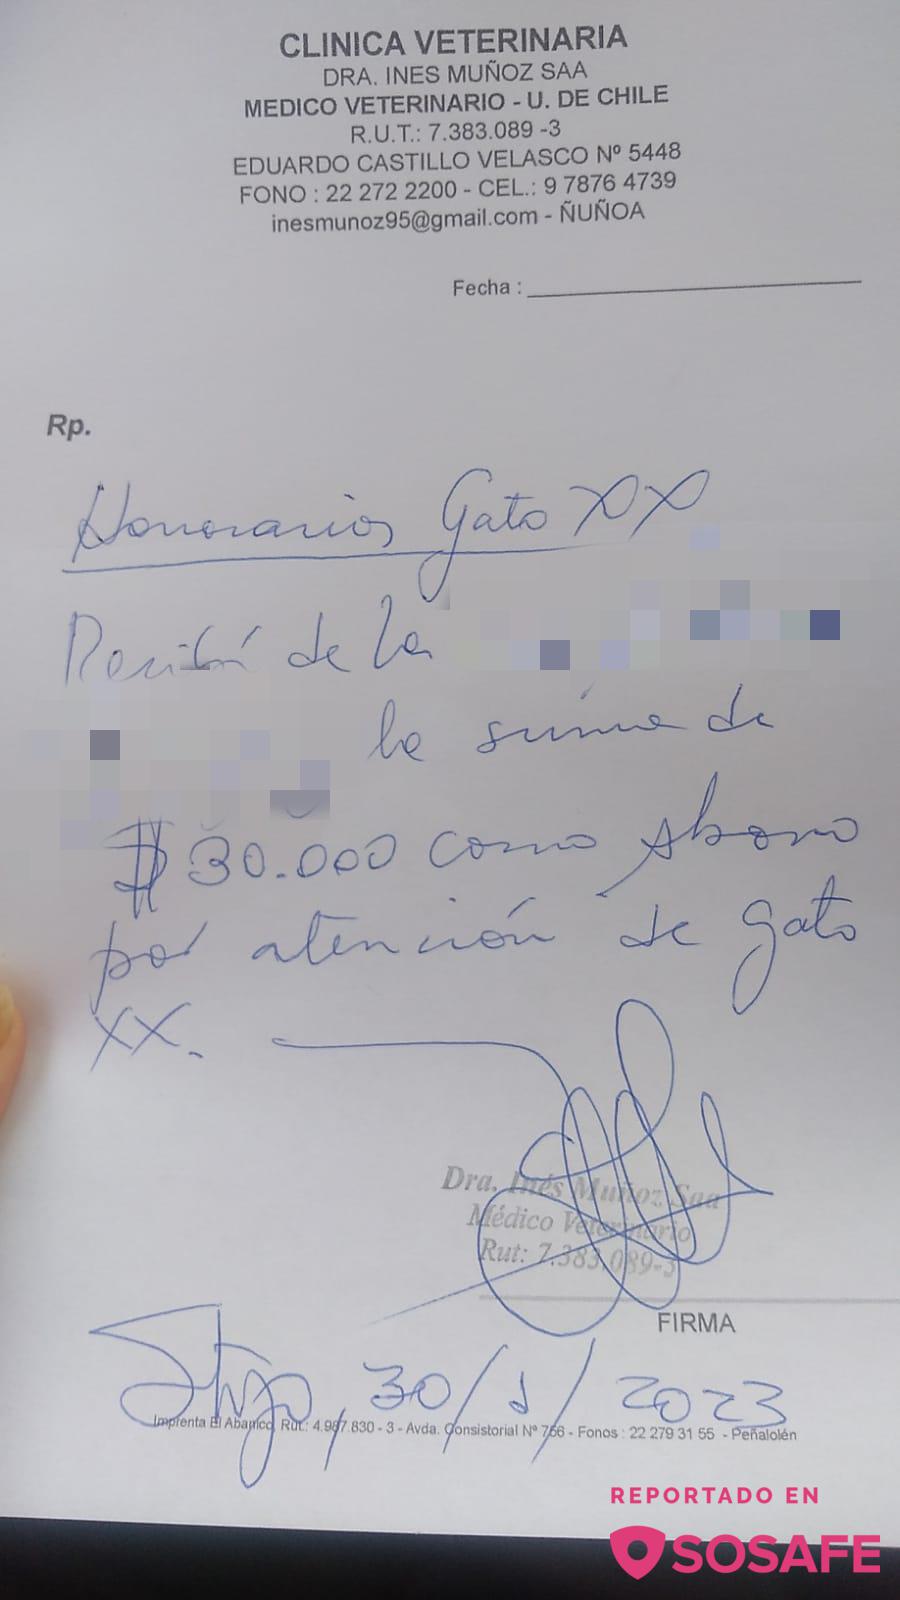 CLINICA VETERINARIA
DRA. INES MUÑOZ SAA
MEDICO VETERINARIO - U. DE CHILE
R.U.T.: 7.383.089 -3
EDUARDO CASTILLO VELASCO Nº 5448
FONO : 22 272 2200 - CEL.: 9 7876 4739
inesmunoz95@gmail.com - ÑUÑOA
Fecha :
Rp.
Honorarios Gato XX
Recibí de la
la suma de
$ 30.000 como Abono
por atención de gato
XX.
Dra. Inés Muñoz Saa
Médico Veterinario
Rut: 7.383.089-3
FIRMA
Stgo, 30/1/2023
Imprenta El Abanico, Rut.: 4.967.830 - 3 - Avda. Consistorial Nº 756 - Fonos : 22 279 31 55 - Peñalolén
REPORTADO EN
SOSAFE